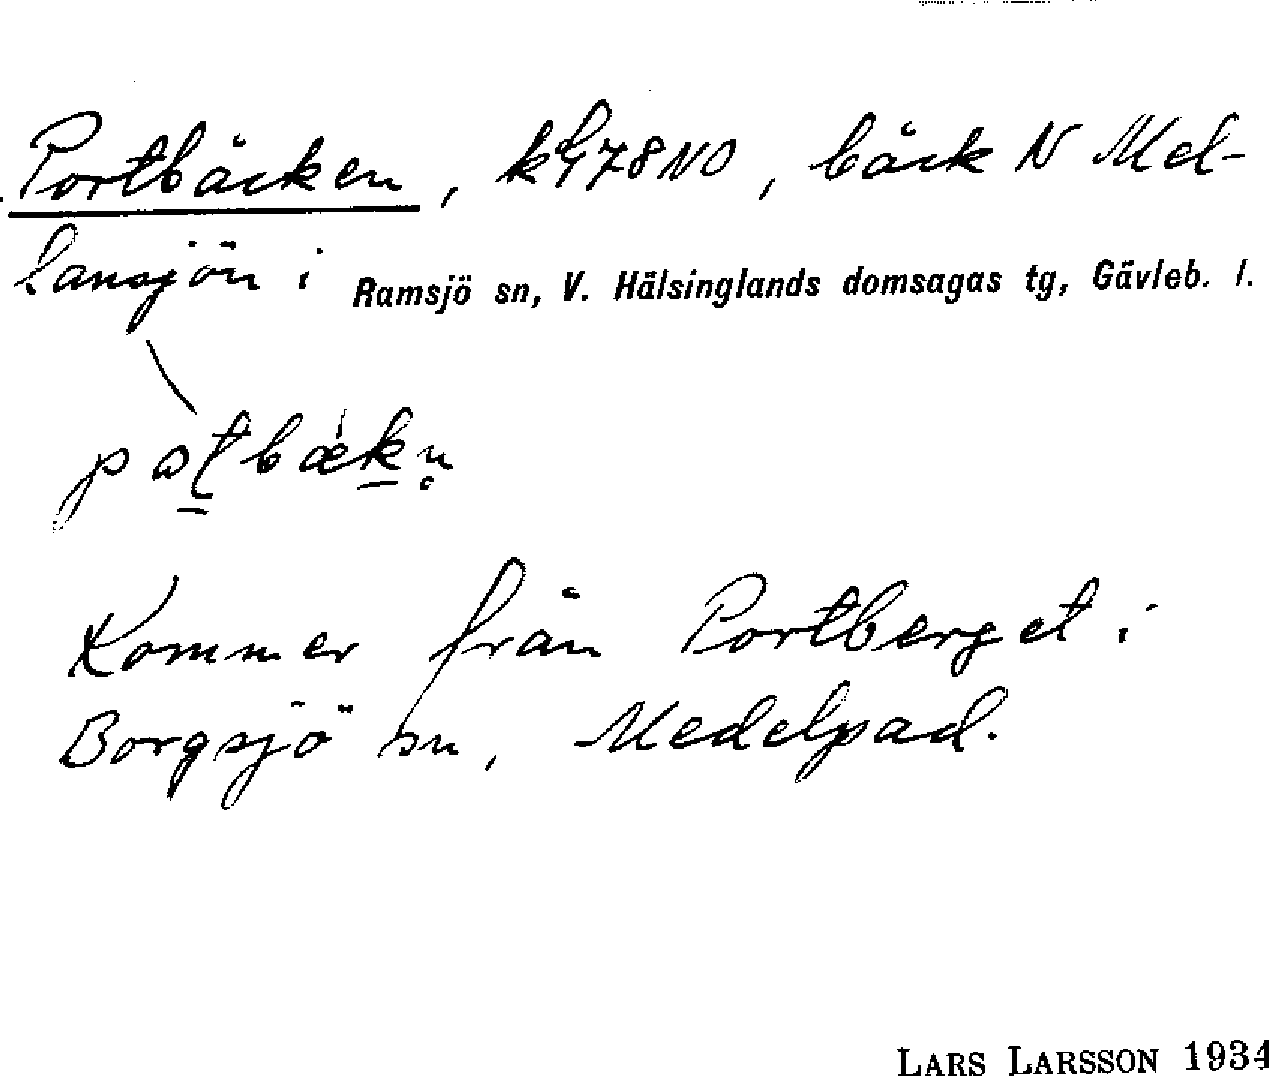 Portbäcken, kbl 78 NO, bäck N Mel-
lansjön i Ramsjö sn, V. Hälsinglands domsagas tg, Gävleb. l.
Kommer från Portberget i
Borgsjö sn, Medelpad.
LARS LARSSON 1934